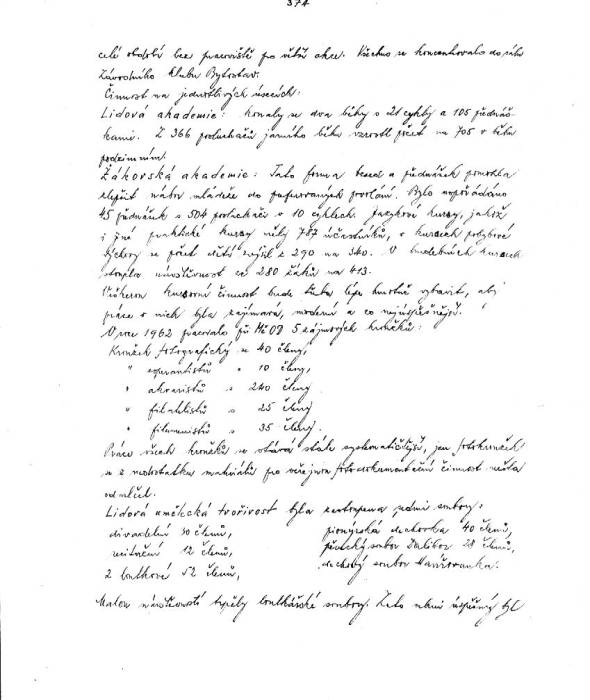 374
celé období bez pracoviště pro větší akce. Všechno se koncentrovalo do sálu
Závodního klubu Bytostav.
Činnost na jednotlivých úsecích:
Lidová akademie: konaly se dva běhy s 21 cykly a 105 přednáš-
kami. Z 366 posluchačů jarního běhu vzrostl počet na 705 v běhu
podzimním.
Žákovská akademie: Tato forma besed a přednášek pomohla
zlepšit nábor mládeže do preferovaných povolání. Bylo uspořádáno
45 přednášek s 504 posluchači v 10 cyklech. Jazykové kursy, jakož
i jiné praktické kursy měly 787 účastníků, v kursech pohybové
výchovy se počet dětí zvýšil z 290 na 340. V hudebních kursech
stoupla návštěvnost ze 280 žáků na 413.
Veškerou kursovní činnost bude třeba lépe hmotně vybavit, aby
práce v nich byla zajímavá, moderní a co nejúspěšnější.
V roce 1962 pracovalo při 5 zájmových kroužků:
Kroužek fotografický se 40 členy,
" esperantistů s 10 členy,
" akvaristů s 240 členy
" filatelistů s 25 členy
" filumenistů s 35 členy.
Práce všech kroužků se stává stále systematičtější, jen fotokroužek
se z nedostatku materiálu pro veřejnou fotodokumentační činnost
odmlčel.
Lidová umělecká tvořivost byla zastoupena těmito soubory:
divadelní 30 členů, pionýrská dechovka 40 členů,
recitační 12 členů, pěvecký soubor Dalibor 28 členů,
2 loutkové 52 členů, dechový soubor Havířovanka.
Malou návštěvností trpěly loutkářské soubory. Zato velmi úspěšný byl